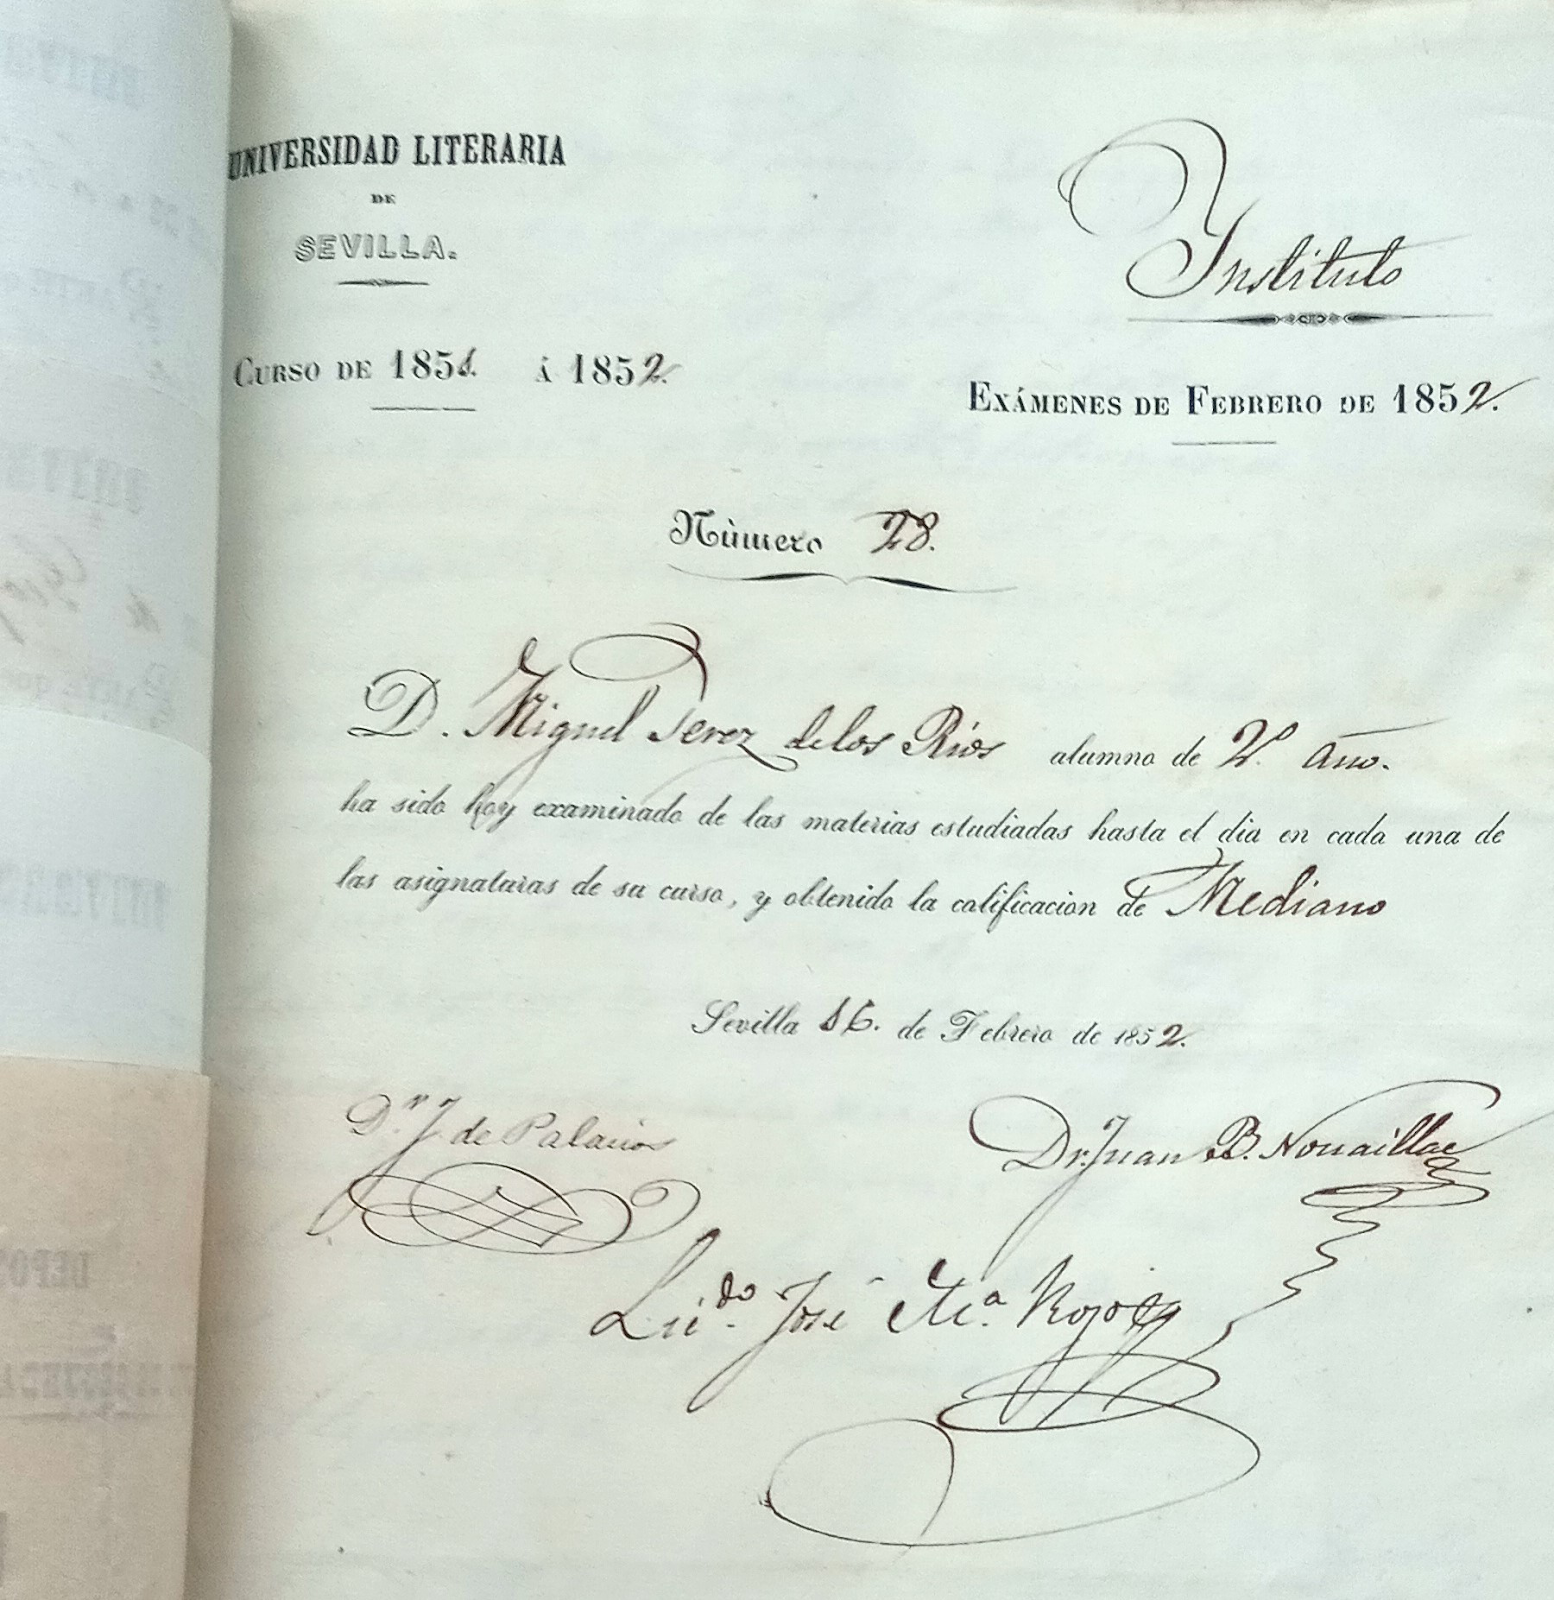 UNIVERSIDAD LITERARIA
DE
SEVILLA.
CURSO DE 1851. Á 1852.
Instituto
EXÁMENES DE FEBRERO DE 1852.
Número 28.
D. Miguel Perez de los Rios alumno de 2º año.
ha sido hoy examinado de las materias estudiadas hasta el dia en cada una de
las asignaturas de su curso, y obtenido la calificacion de Mediano
Sevilla 16. de Febrero de 1852.
Dn. J. de Palacios
Dr. Juan B. Nouaillac
Licdo. José Ma. Rojo